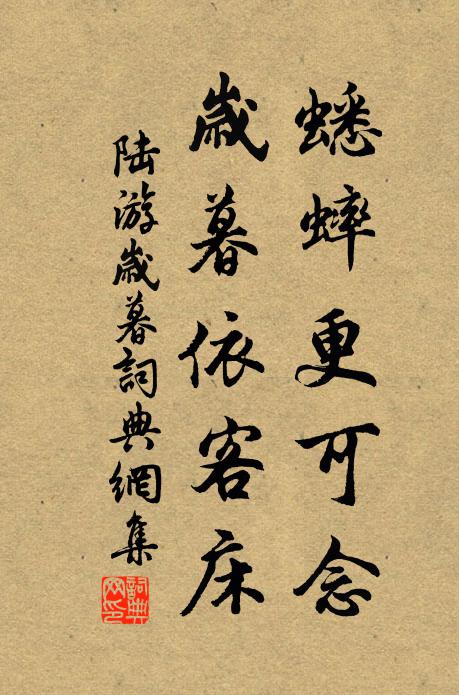 蟋蟀更可念
歲暮依客床
陆游歲暮詞典網集
詞典网印